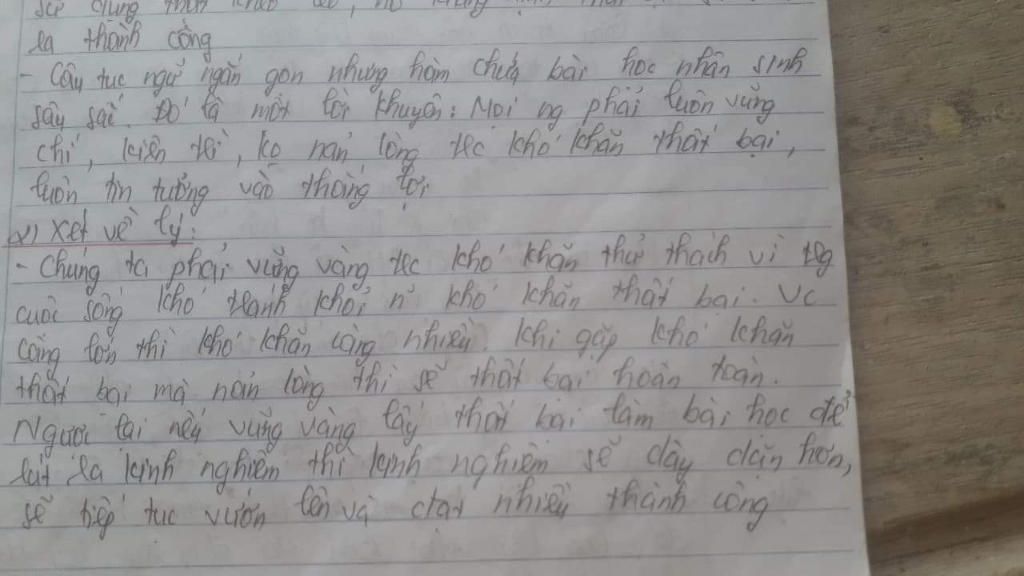 la thành công
- Câu tục ngữ ngắn gọn nhưng hàm chứa bài học nhân sinh
sâu sắc. Đó là một lời khuyên: Mọi ng phải luôn vững
chí, kiên trì, ko nản lòng trc khó khăn thất bại,
luôn tin tưởng vào thắng lợi
2) Xét về lý:
- Chúng ta phải vững vàng trc khó khăn thử thách vì trg
cuộc sống khó tránh khỏi n~ khó khăn thất bại. Vc
càng lớn thì khó khăn càng nhiều khi gặp khó khăn
thất bại mà nản lòng thì sẽ thất bại hoàn toàn.
Ngược lại nếu vững vàng lấy thất bại làm bài học để
rút ra kinh nghiệm thì kinh nghiệm sẽ dày dặn hơn,
sẽ tiếp tục vươn lên và đạt nhiều thành công